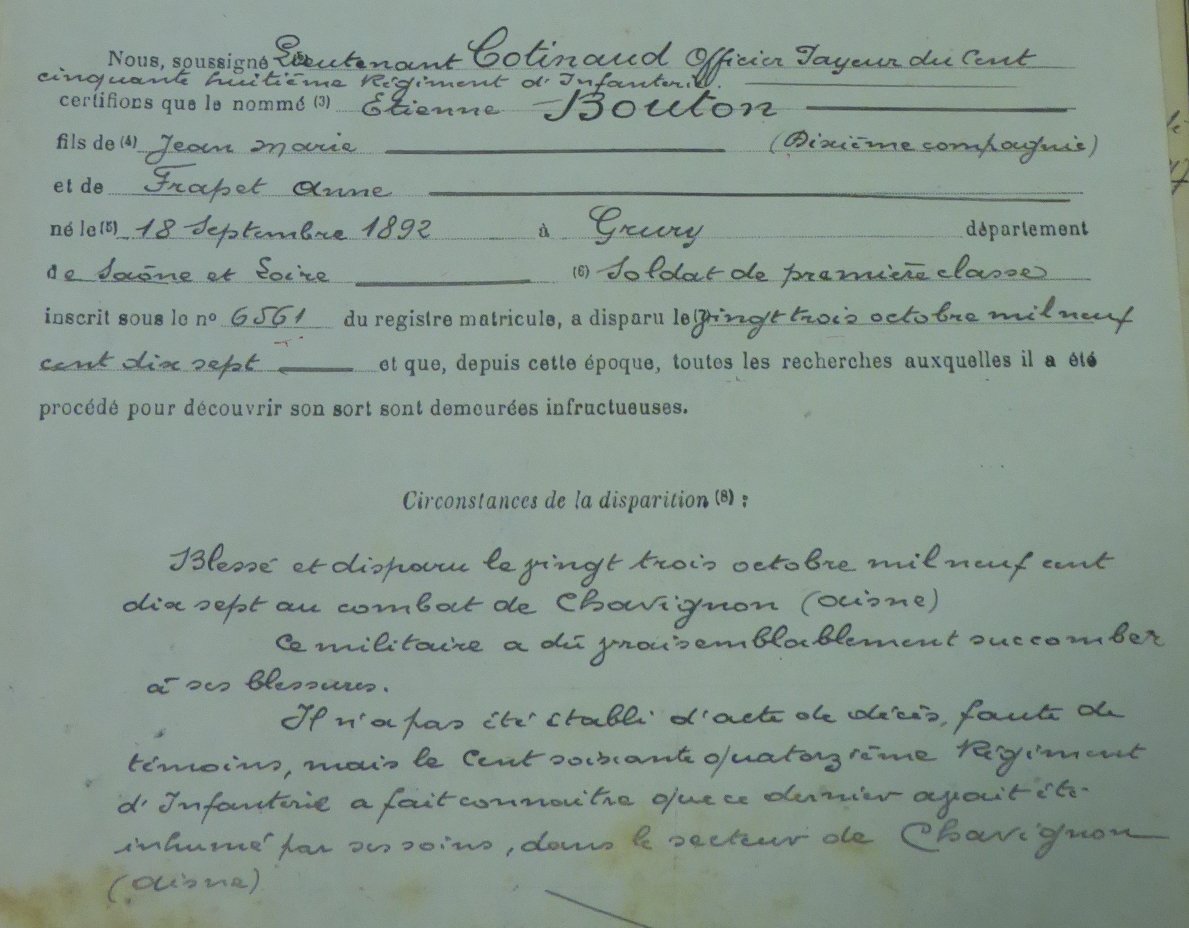 Nous, soussigné Lieutenant Cotinaud Officier Payeur du Cent
cinquante huitième Régiment d'Infanterie.
certifions que le nommé (3) Etienne Bouton
fils de (4) Jean Marie (Dixième compagnie)
et de Frapet Anne
né le (5) 18 Septembre 1892 à Grury département
de Saône et Loire (6) Soldat de première classe
inscrit sous le no 6561 du registre matricule, a disparu le (7) vingt trois octobre mil neuf
cent dix sept et que, depuis cette époque, toutes les recherches auxquelles il a été
procédé pour découvrir son sort sont demeurées infructueuses.
Circonstances de la disparition (8) :
Blessé et disparu le vingt trois octobre mil neuf cent
dix sept au combat de Chavignon (Aisne)
Ce militaire a dû vraisemblablement succomber
à ses blessures.
Il n'a pas été établi d'acte de décès, faute de
témoins, mais le Cent soixante quatorzième Régiment
d'Infanterie a fait connaitre que ce dernier avait été
inhumé par ses soins, dans le secteur de Chavignon
(Aisne)